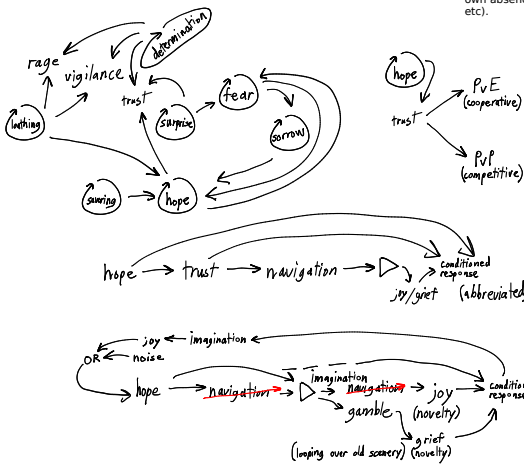 own absenc
etc).
determination
rage
vigilance
trust
loathing
surprise
fear
sorrow
savoring
hope
hope
trust
PvE
(cooperative)
PvP
(competitive)
hope
trust
navigation
joy/grief
conditioned
response
(abbreviated
joy
imagination
OR
noise
hope
navigation
imagination
navigation
gamble
joy
(novelty)
condition
response
grief
(looping over old scenery)
(novelty)